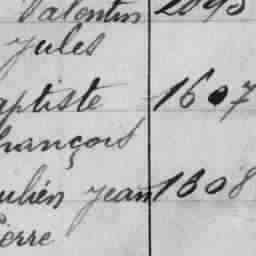 Valentin 2093
Jules
aptiste 1607
François
ulien Jean 1608
Pierre